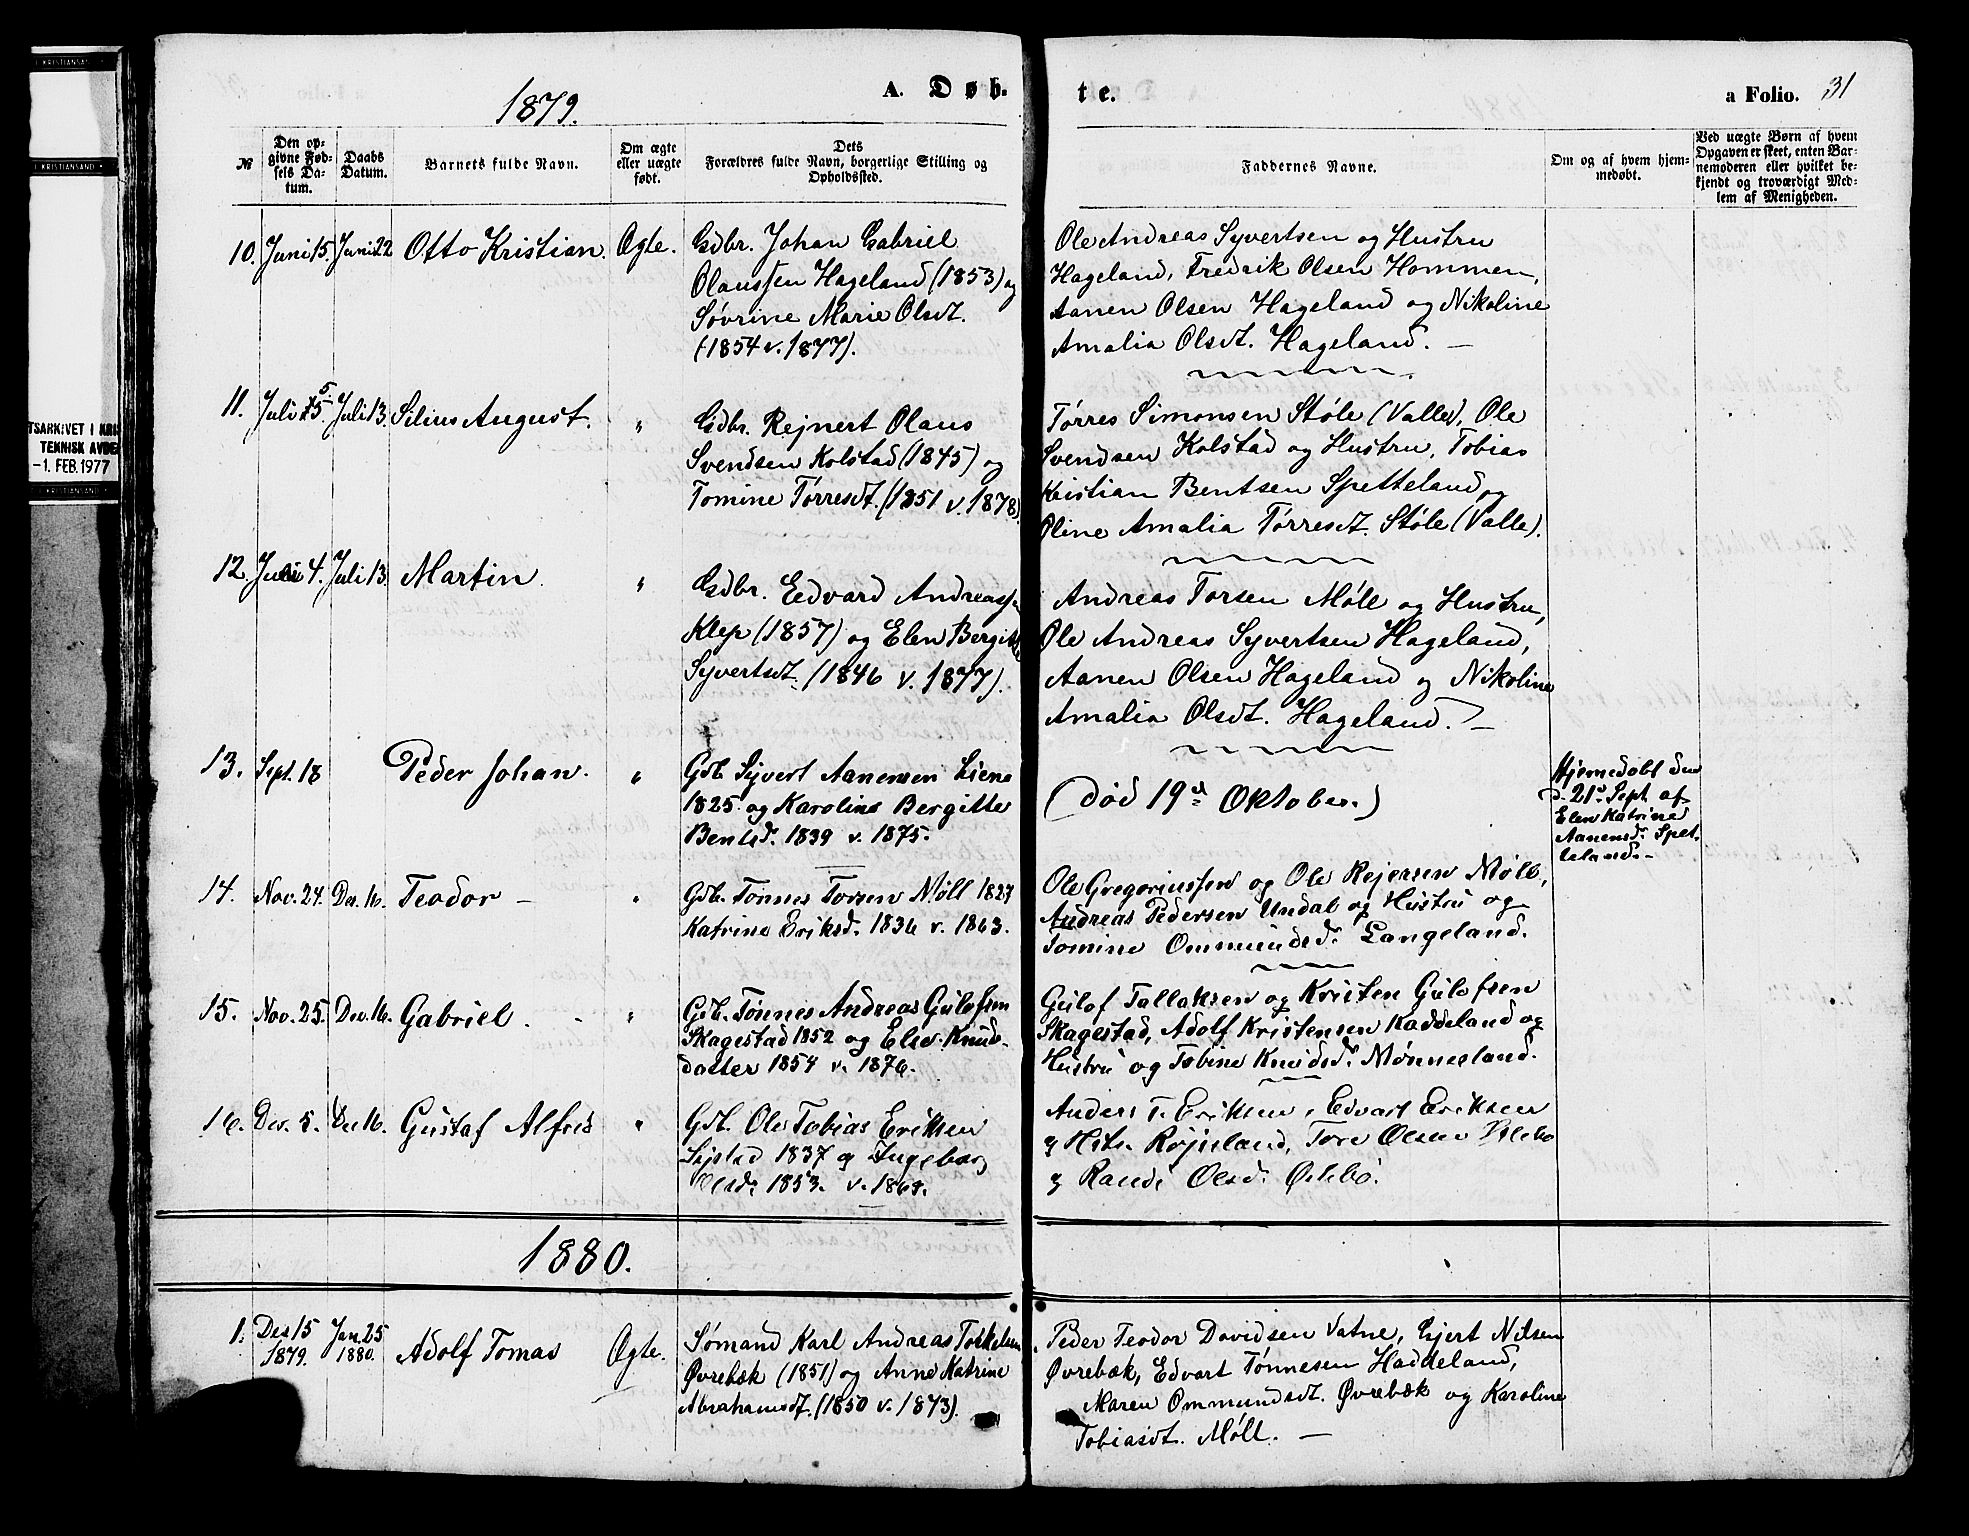 I KRISTIANSAND
KRISTIANSAND
TSARKIVET I KRIS
TEKNISK AVDE
-1. FEB. 1977
KRISTIANSAND
1879.
A. Døb-
te.
a Folio. 31
№
Den op-
givne Fød-
sels Da-
tum.
Daabs
Datum.
Barnets fulde Navn.
Om ægte
eller uægte
født.
Dets
Forældres fulde Navn, borgerlige Stilling og
Opholdssted.
Faddernes Navne.
Om og af hvem hjem-
medøbt.
Ved uægte Børn af hvem
Opgaven er skeet, enten Bar-
nemoderen eller hvilket be-
kjendt og troværdigt Med-
lem af Menigheden.
10. Juni 15. Juni 22 Otto Kristian. Ægte.
Gdbr. Johan Gabriel
Olaussen Hageland (1853) og
Sovrine Marie Olsdt.
(1854 v. 1877).
Ole Andreas Syvertsen og Hustru
Hageland, Fredrik Olsen Hommen,
Aanen Olsen Hageland og Nikoline
Amalia Olsdt. Hageland. —
11. Juli 5. Juli 13. Silius August. "
Gdbr. Rejnert Olaus
Svendsen Kolstad (1845) og
Tomine Tørresdt. (1851 v. 1878).
Tørres Simonsen Støle (Valle), Ole
Svendsen Kolstad og Hustru, Tobias
Kristian Bentsen Spetteland og
Oline Amalia Tørresdt. Støle (Valle).
12. Juli 4. Juli 13. Martin. "
Gdbr. Edvard Andreassen
Klep (1857) og Elen Bergitte
Syvertsdt. (1846 v. 1877).
Andreas Torsen Möll og Hustru,
Ole Andreas Syvertsen Hageland,
Aanen Olsen Hageland og Nikoline
Amalia Olsdt. Hageland. —
13. Sept. 18 Peder Johan. "
Gdb. Syvert Aanensen Liene
1825. og Karoline Bergitte
Bentsd. 1839 v. 1875.
(død 19d Oktober.)
Hjemedøbt den
d. 21d Sept. af
Elen Katrine
Aanensd. Spet-
teland. -
14. Nov. 24. Des. 16. Teodor - "
Gdb. Tønnes Torsen Möll 1827
Katrine Eriksd. 1836 v. 1863.
Ole Gregoriussen og Ole Rejersen Möll,
Andreas Pedersen Undal og Hustru og
Tomine Ommundsd. Langeland.
15. Nov. 25. Des. 16. Gabriel. - "
Gdb. Tønnes Andreas Gulofsen
Skagestad 1852 og Else Knuds-
datter 1854 v. 1876.
Gulof Tallaksen og Kristen Gulofsen
Skagestad, Adolf Kristensen Kaddeland og
Hustru og Tobine Knudsd. Mønneland.
16. Des. 5. Des 16. Gustaf Alfred "
Gdb. Ole Tobias Eriksen
1837 og Ingeborg
Olsd. 1853. v. 1868.
Anders T. Eriksen, Edvart Eriksen
og Hstr. Røjseland, Tore Olsen
og Randi Olsd. Øilebø.
1880.
1. Des 15 Jan. 25
1879. 1880.
Adolf Tomas Ægte.
Sømand Karl Andreas Torkelsen
Øvrebæk (1851) og Anne Katrine
Abrahamsdt. (1850 v. 1873).
Peder Teodor Davidsen Vatne, Gjert Nilsen
Øvrebæk, Edvart Tønnesen Haddeland,
Maren Ommundsdt. Øvrebæk og Karoline
Tobiasdt. Möll. —